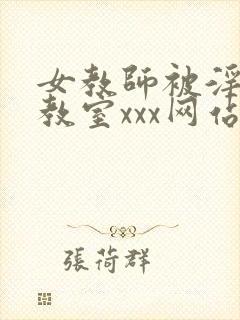 女教師被淫
教室xxx网佔
張荷群